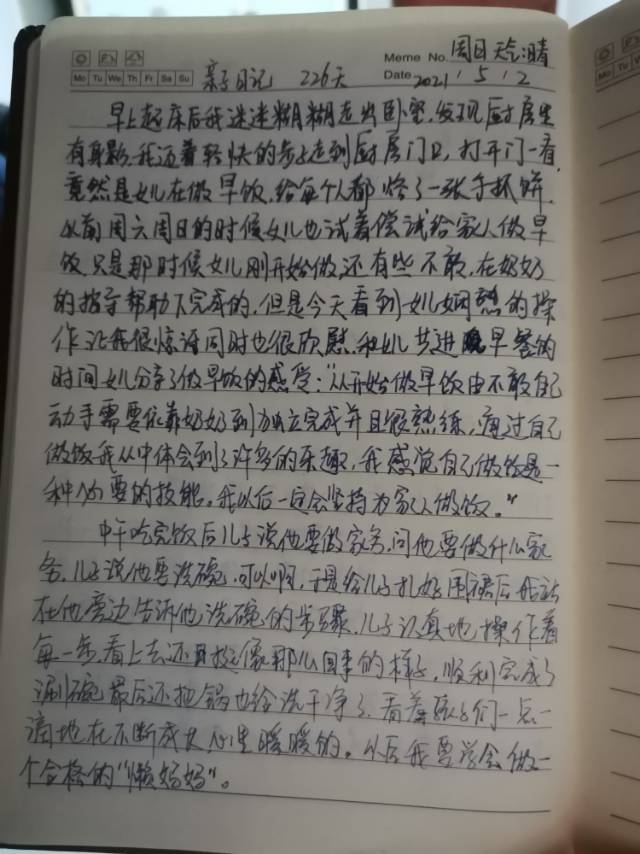 Meme No. 周日 天气:晴
Mo Tu We Th Fr Sa Su 亲子日记 226天 Date 2021 . 5 . 2
早上起床后我迷迷糊糊走出卧室,发现厨房里
有身影,我迈着轻快的步子走到厨房门口,打开门一看
竟然是女儿在做早饭,给每个人都烙了一张手抓饼.
以前周六周日的时候女儿也试着偿试给家人做早
饭,只是那时候女儿刚开始做,还有些不敢,在奶奶
的指导帮助下完成的,但是今天看到女儿娴熟的操
作让我很惊讶同时也很欣慰,和女儿共进早餐的
时间女儿分享了做早饭的感受:“从开始做早饭由不敢自己
动手需要依靠奶奶到独立完成并且很熟练,通过自己
做饭我从中体会到了许多的乐趣,我感觉自己做饭是一
种必要的技能。我以后一定会坚持为家人做饭。”
中午吃完饭后儿子说他要做家务,问他要做什么家
务,儿子说他要洗碗,可以啊,于是给儿子扎好围裙后我站
在他旁边告诉他洗碗的步骤,儿子认真地操作着
每一步,看上去还挺像那么回事的样子,顺利完成了
涮碗,最后还把锅也给洗干净了,看着孩子们一点一
滴地在不断成长心里暖暖的。以后我要学会做一
个合格的“懒妈妈”。